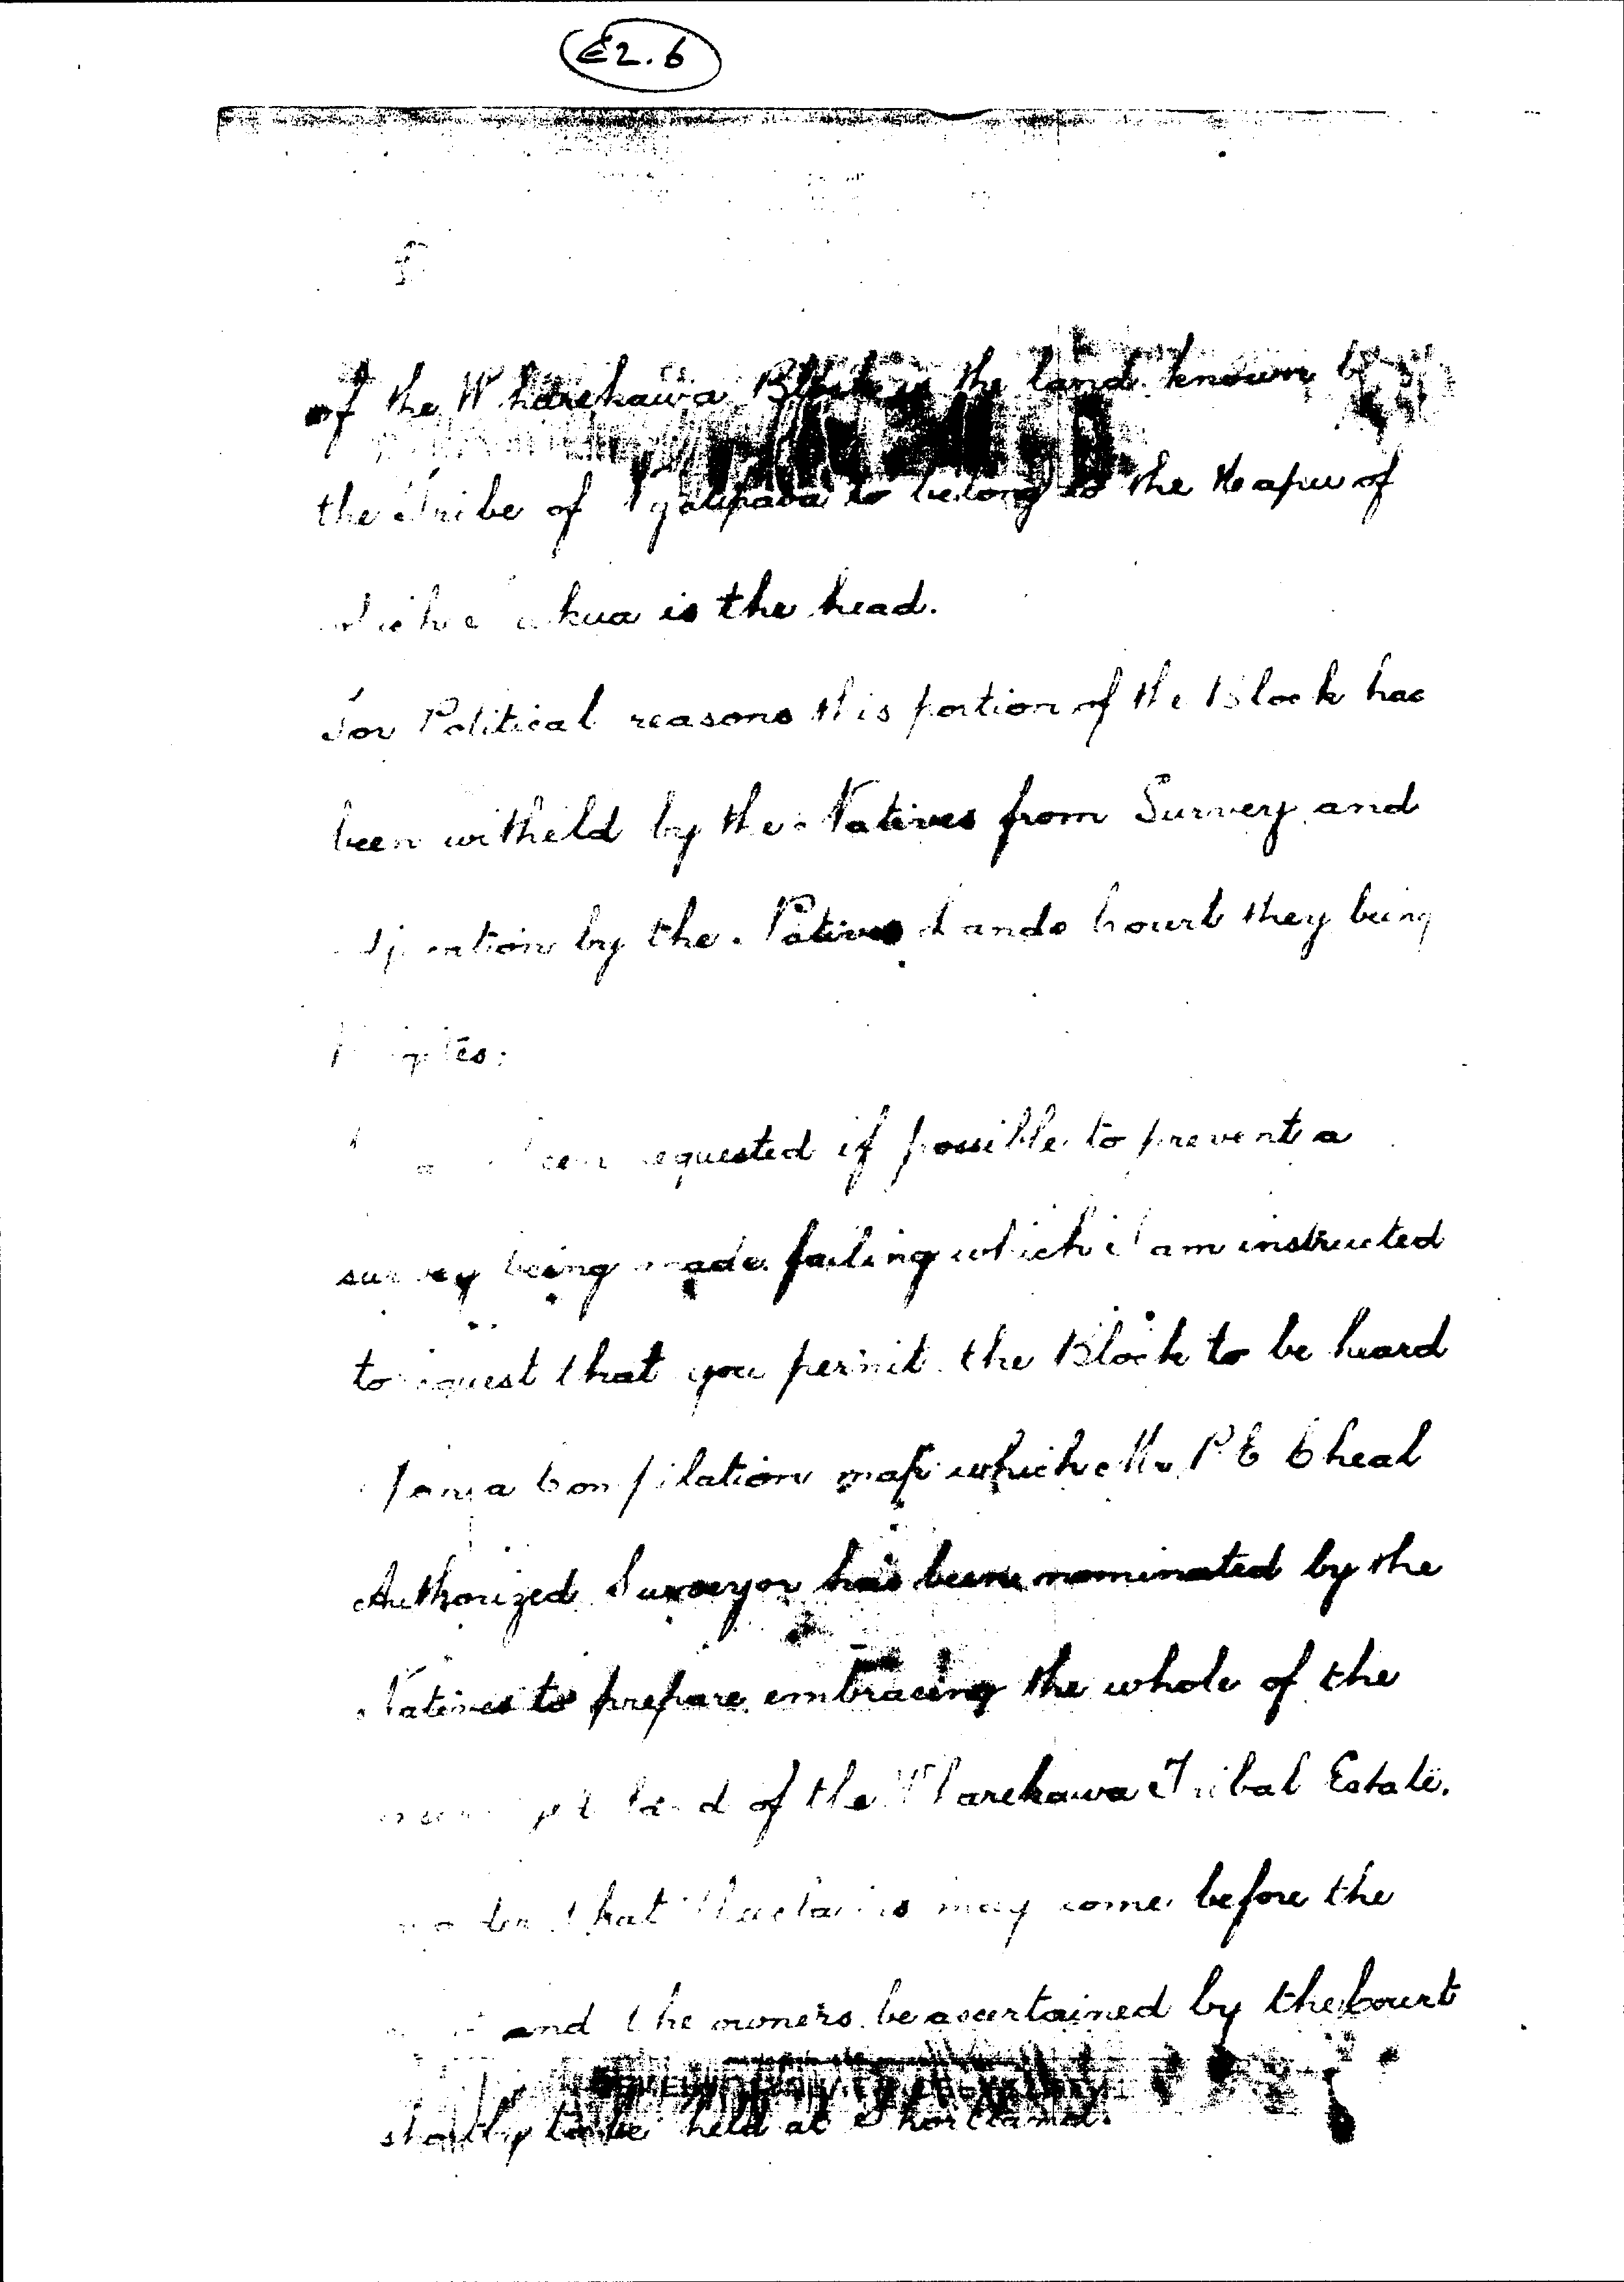 E2.6
of the Wharekawa Block is the land known by
the Tribe of Ngatipaoa to belong to the Heapu of
is the head.
For Political reasons this portion of the Block has
been witheld by the Natives from Survey and
by the Native Lands Court they being
been requested if possible to prevent a
survey being made failing which I am instructed
to request that you permit the Block to be heard
a Compilation map which Mr P E Cheal
Authorized Surveyor has been nominated by the
Natives to prepare embracing the whole of the
land of the Wharekawa Tribal Estate.
that may come before the
and the owners be ascertained by the Court
shortly to be held at Shortland.